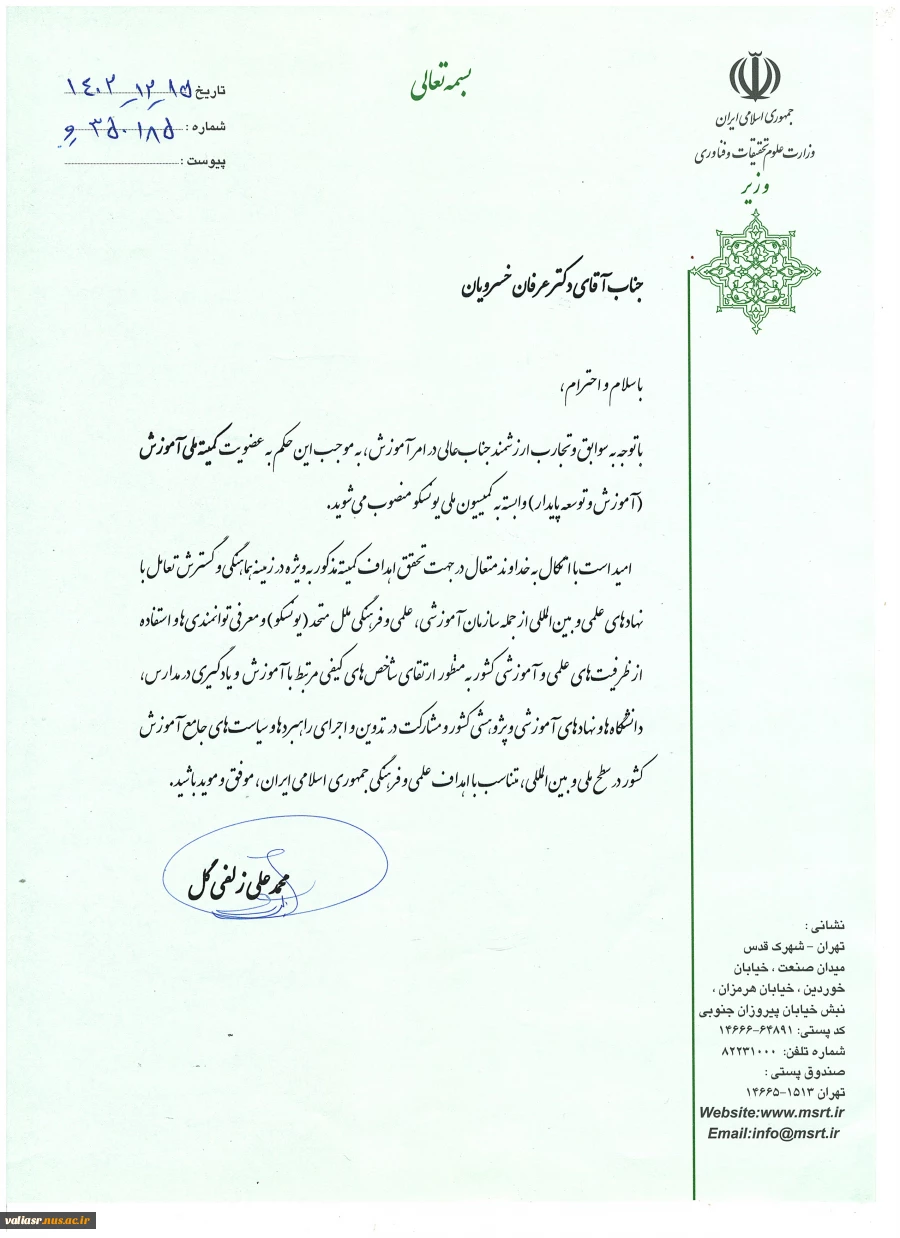 بسمه تعالی
جمهوری اسلامی ایران
وزارت علوم تحقیقات و فناوری
وزیر
تاریخ ۱۴۰۲-۱۲-۱۵
شماره : ۳۵۰۱۸۵ و
پیوست :
جناب آقای دکتر عرفان خسرویان
با سلام و احترام،
با توجه به سوابق و تجارب ارزشمند جناب‌عالی در امر آموزش، به موجب این حکم به عضویت کمیته ملی آموزش
(آموزش و توسعه پایدار) وابسته به کمیسیون ملی یونسکو منصوب می‌شوید.
امید است با اتکال به خداوند متعال در جهت تحقق اهداف کمیته مذکور به ویژه در زمینه هماهنگی و گسترش تعامل با
نهادهای علمی و بین‌المللی از جمله سازمان آموزشی، علمی و فرهنگی ملل متحد (یونسکو) و معرفی توانمندی‌ها و استفاده
از ظرفیت‌های علمی و آموزشی کشور به منظور ارتقای شاخص‌های کیفی مرتبط با آموزش و یادگیری در مدارس،
دانشگاه‌ها و نهادهای آموزشی و پژوهشی کشور و مشارکت در تدوین و اجرای راهبردها و سیاست‌های جامع آموزش
کشور در سطح ملی و بین‌المللی، متناسب با اهداف علمی و فرهنگی جمهوری اسلامی ایران، موفق و موید باشید.
محمدعلی زلفی گل
نشانی :
تهران - شهرک قدس
میدان صنعت ، خیابان
خوردین ، خیابان هرمزان ،
نبش خیابان پیروزان جنوبی
کد پستی: ۶۴۸۹۱-۱۴۶۶۶
شماره تلفن: ۸۲۲۳۱۰۰۰
صندوق پستی :
تهران ۱۵۱۳-۱۴۶۶۵
Website:www.msrt.ir
Email:info@msrt.ir
valiasr.nus.ac.ir